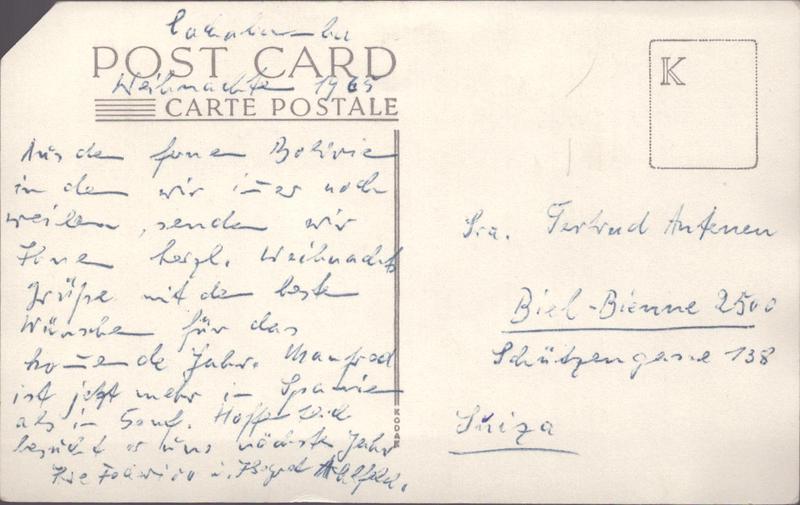 Cochabamba
POST CARD
Weihnachten 1965
CARTE POSTALE
Aus dem fernen Bolivien
in dem wir immer noch
weilen, senden wir
Ihnen herzl. Weihnachts
Grüße mit den besten
Wünschen für das
kommende Jahr. Manfred
ist jetzt mehr in Spanien
als in Genf. Hoffentlich
besucht er uns nächstes Jahr
Ihre Federico u. Ahlfeld.
KODAK
K
Sra. Gertrud Antenen
Biel-Bienne 2500
Schützengasse 138
Suiza